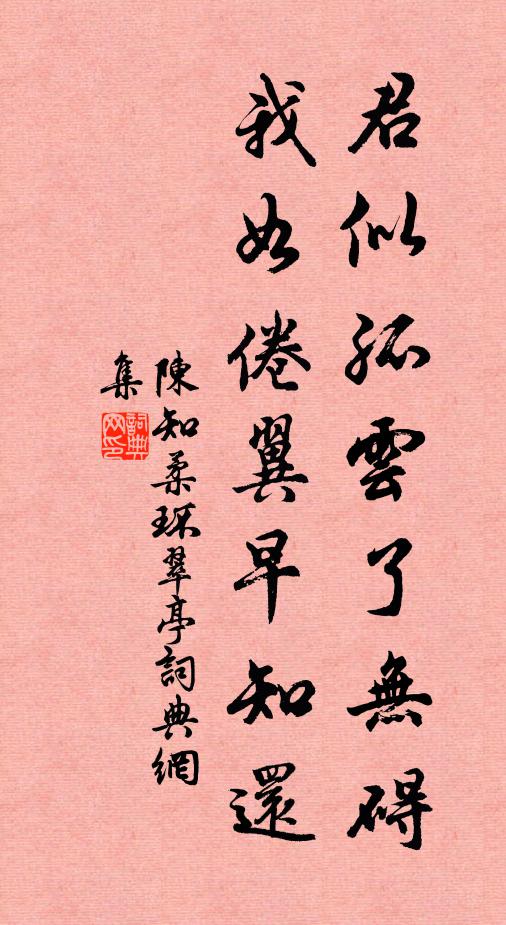 君似孤雲了無碍
我如倦翼早知還
陳知柔環翠亭詞典網
集
詞典網印